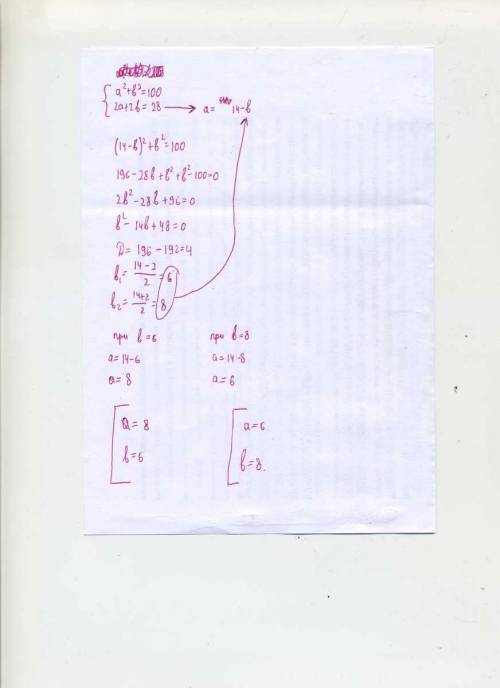 { a²+b²=100
2a+2b=28 → a= 14-b
(14-b)²+b²=100
196-28b+b²+b²-100=0
2b²-28b+96=0
b²-14b+48=0
D=196-192=4
b₁= (14-2)/2 =6
b₂= (14+2)/2 =8
при b=6 при b=8
a=14-6 a=14-8
a=8 a=6
[ a=8 [ a=6
b=6 b=8.